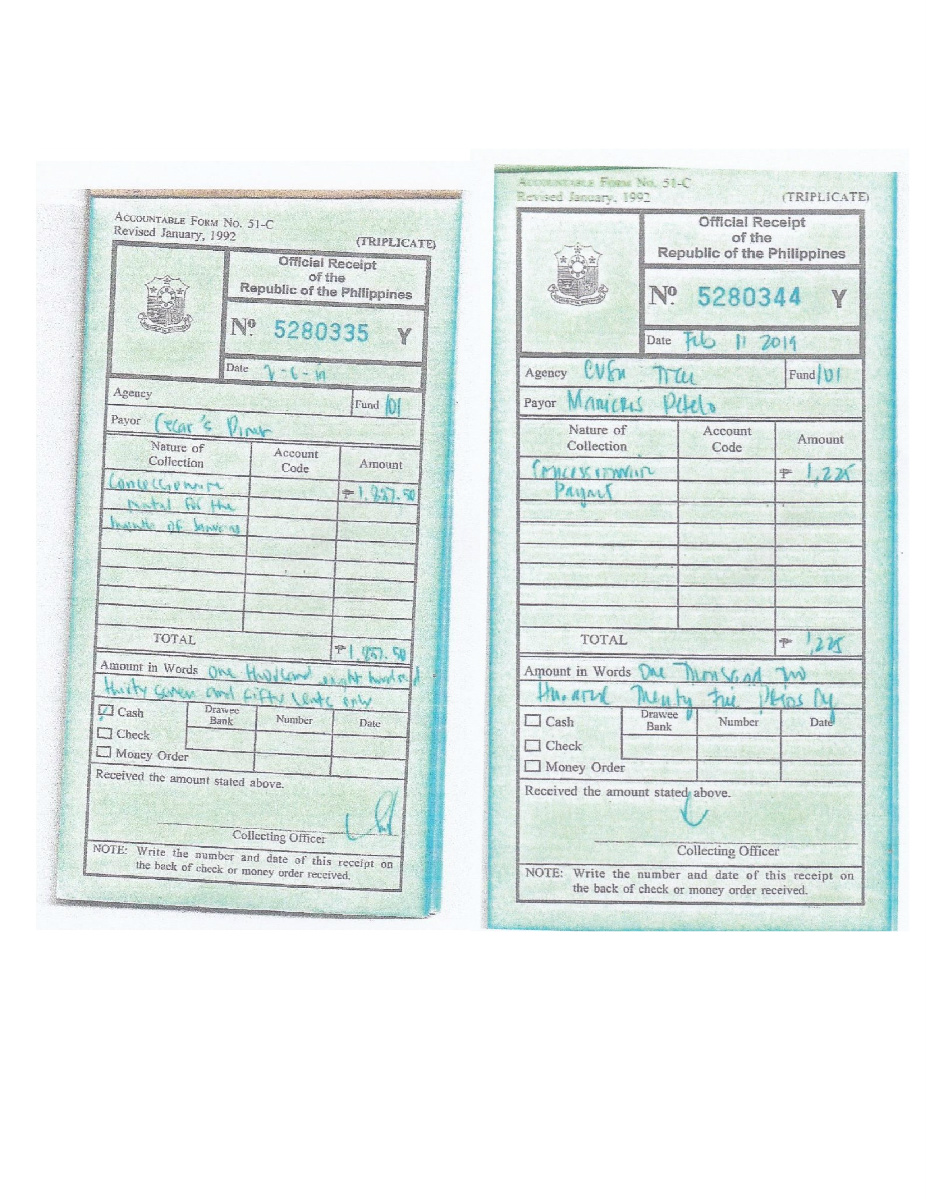 ACCOUNTABLE FORM No. 51-C
Revised January, 1992
(TRIPLICATE)
Official Receipt
of the
Republic of the Philippines
Nº 5280335 Y
Date
Agency
Fund 101
Payor Cecar's Diner
Nature of Collection
Account Code
Amount
Concessionaire
₱ 1,837.50
rental for the
month of January
TOTAL
₱ 1,837.50
Amount in Words One thousand eight hundred
thirty seven and fifty cents only
Cash
Check
Money Order
Drawee Bank
Number
Date
Received the amount stated above.
Collecting Officer
NOTE: Write the number and date of this receipt on
the back of check or money order received.
ACCOUNTABLE FORM No. 51-C
Revised January, 1992
(TRIPLICATE)
Official Receipt
of the
Republic of the Philippines
Nº 5280344 Y
Date Feb 11 2019
Agency
Fund 101
Payor
Nature of Collection
Account Code
Amount
Concessionair
₱ 1,225
Paymt
TOTAL
₱ 1,225
Amount in Words One Thousand Two
Hundred Twenty Five Pesos Only
Cash
Check
Money Order
Drawee Bank
Number
Date
Received the amount stated above.
Collecting Officer
NOTE: Write the number and date of this receipt on
the back of check or money order received.